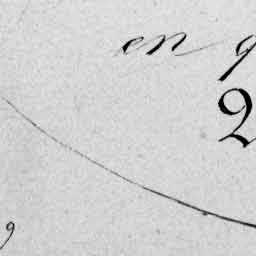 en
2
9